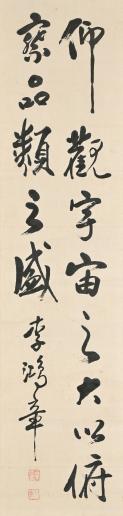 仰觀宇宙之大以俯
察品類之盛
李鴻章